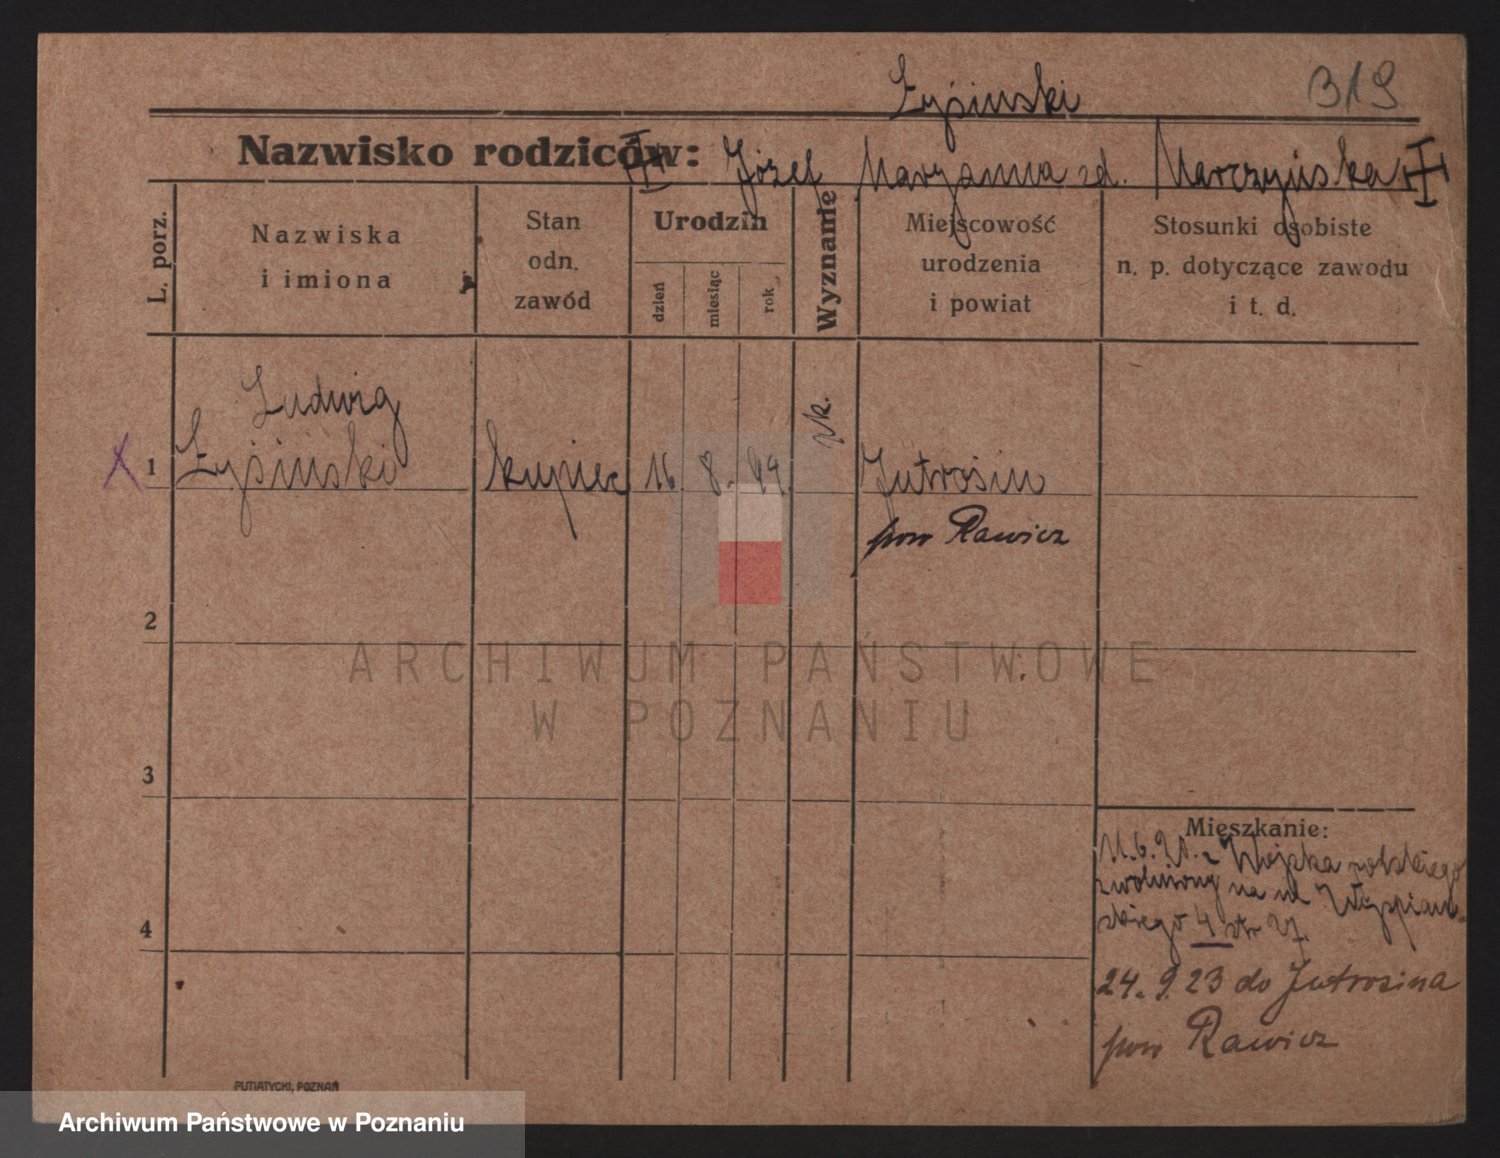 319
Łysiński
Nazwisko rodziców: Józef Maryanna zd. Marczyńska
L. porz.
Nazwiska
i imiona
Stan
odn.
zawód
Urodzin
dzień
miesiąc
rok
Wyznanie
Miejscowość
urodzenia
i powiat
Stosunki osobiste
n. p. dotyczące zawodu
i t. d.
Ludwig
X 1 Łysiński kupiec 16. 8. rk. Jutrosin
pow Rawicz
2
ARCHIWUM PAŃSTWOWE
W POZNANIU
3
Mieszkanie:
11.6. z Wojska polskiego
zwolniony na ul Wyspiań-
4 skiego 4 ptr
24. 9. 23 do Jutrosina
pow Rawicz
PUTIATYCKI, POZNAŃ
Archiwum Państwowe w Poznaniu